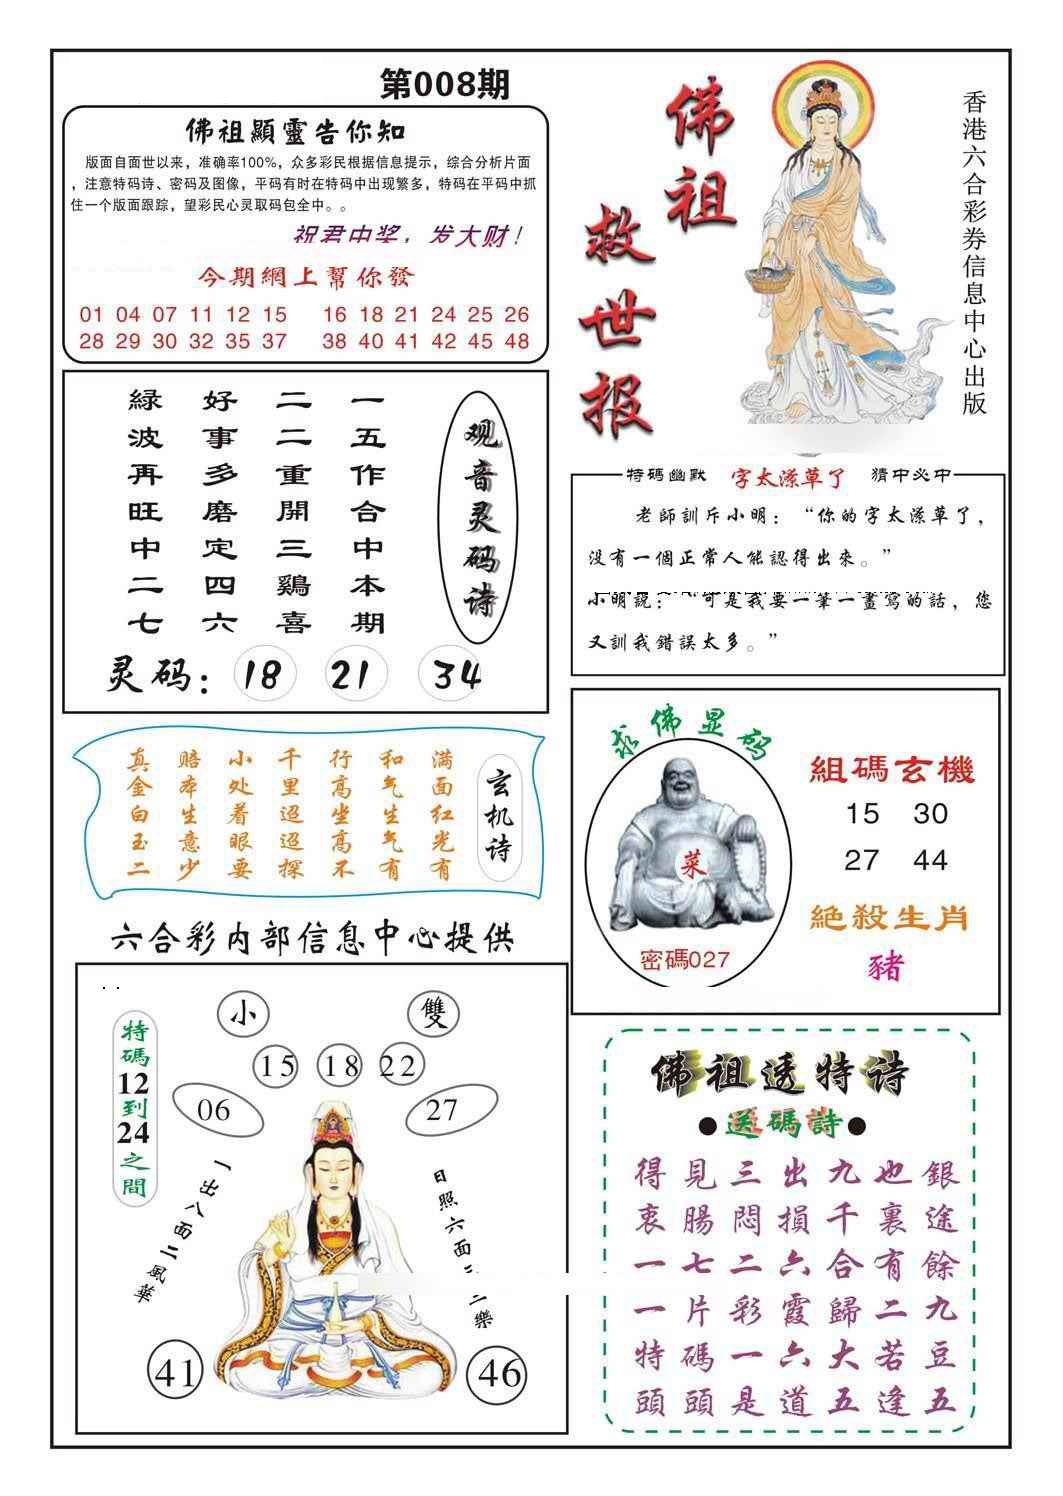 第008期
佛祖顯靈告你知
版面自面世以来，准确率100%，众多彩民根据信息提示，综合分析片面
，注意特码诗、密码及图像，平码有时在特码中出现繁多，特码在平码中抓
住一个版面跟踪，望彩民心灵取码包全中。。
祝君中奖，发大财！
今期網上幫你發
01 04 07 11 12 15 16 18 21 24 25 26
28 29 30 32 35 37 38 40 41 42 45 48
佛祖
救世报
香港六合彩券信息中心出版
观音灵码诗
一五作合中本期
二二重開三鷄喜
好事多磨定四六
緑波再旺中二七
灵码：18 21 34
特碼幽默 字太潦草了 猜中必中
老師訓斥小明：“你的字太潦草了，
没有一個正常人能認得出來。”
小明説：“可是我要一筆一畫寫的話，您
又訓我錯誤太多。”
玄机诗
满面红光有
和气生气有
行高坐高不
千里迢迢探
小处着眼要
赔本生意少
真金白玉二
求佛显码
菜
密碼027
組碼玄機
15 30
27 44
絶殺生肖
豬
六合彩内部信息中心提供
特碼12到24之間
小 雙
15 18 22
06 27
一出八面二風華
日照六面
二樂
41 46
佛祖透特诗
●送碼詩●
得見三出九也銀
衷腸悶損千裏途
一七二六合有餘
一片彩霞歸二九
特碼一六大若豆
頭頭是道五逢五